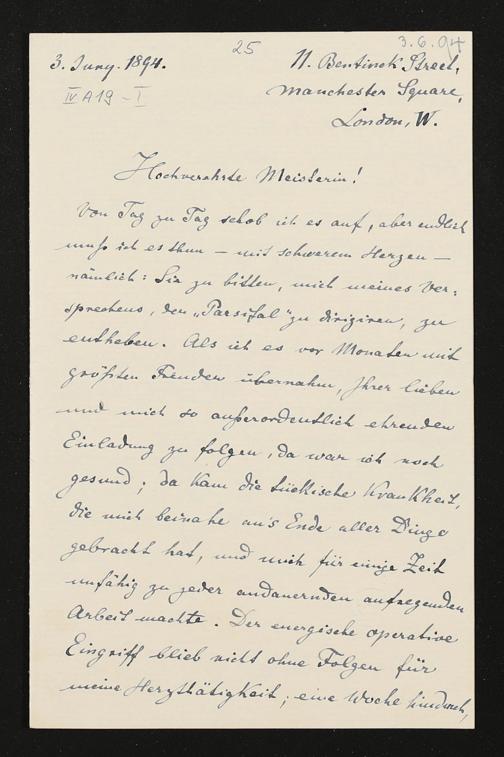 25
3. 6. 94
3. Juny. 1894.
11. Bentinck Street,
IV A19 - I
Manchester Square,
London, W.
Hochverehrte Meisterin!
Von Tag zu Tag schob ich es auf, aber endlich
muß ich es thun – mit schwerem Herzen –
nämlich: Sie zu bitten, mich meines Ver-
sprechens, den „Parsifal" zu dirigiren, zu
entheben. Als ich es vor Monaten mit
größten Freuden übernahm, Ihrer lieben
und mich so außerordentlich ehrenden
Einladung zu folgen, da war ich noch
gesund; da kam die tückische Krankheit,
die mich beinahe an's Ende aller Dinge
gebracht hat, und mich für einige Zeit
unfähig zu jeder andauernden aufregenden
Arbeit machte. Der energische operative
Eingriff blieb nicht ohne Folgen für
meine Herzthätigkeit; eine Woche hindurch,